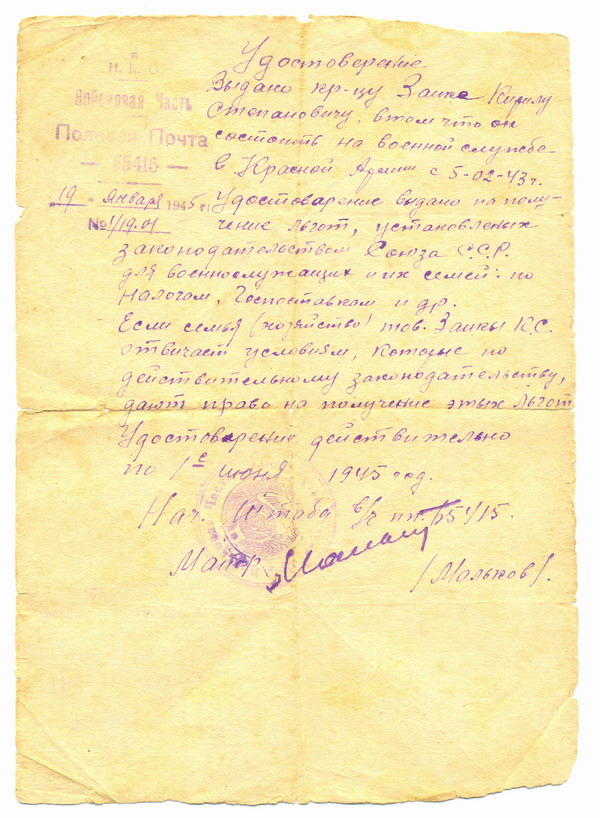 Удостоверение
Н. К. О.
Войсковая Часть
Полевая Почта
— 65415 —
19 " Января 1945 г.
№ 1/19.01
Выдано кр-цу Заике Кирилу
Степановичу, в том что он
состоить на военной службе
в Красной Армии с 5-02-43 г.
Удостоварение выдано на полу-
чение льгот, установленых
законодательством Союза С.С.Р.
для военнослужащих и их семей: по
налогам, Госпоставкам и др.
Если семья (хозяйство) тов. Заики К.С.
отвичает условиям, которые по
действительному законодательству,
дают право на получение этых льгот
Удостоварение действительно
по 1е июня 1945 год.
Нач. Штаба в/ч пп. 65415.
Майор
/Мальков/.